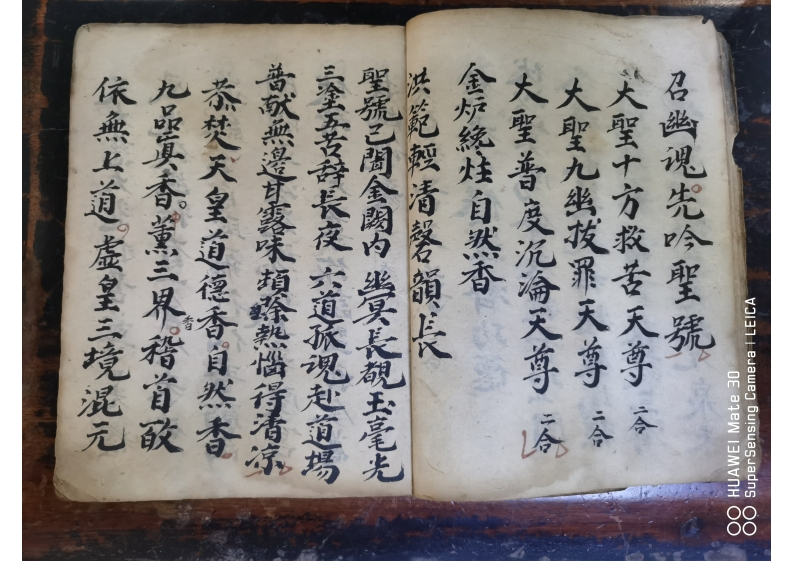 召幽魂先吟聖號
大聖十方救苦天尊 二合
大聖九幽拔罪天尊 二合
大聖普度沉淪天尊 二合
金炉纔炷自然香
洪範輕清磬韻長
聖號已聞金闕内 幽冥長覩玉毫光
三塗五苦辞長夜 六道孤魂赴道場
普献無邉甘露味 頓除熱惱得清凉
恭焚天皇道德香自然香
九品真香薰三界香稽首皈
依無上道虚皇三境混元
HUAWEI Mate 30
SuperSensing Camera | LEICA